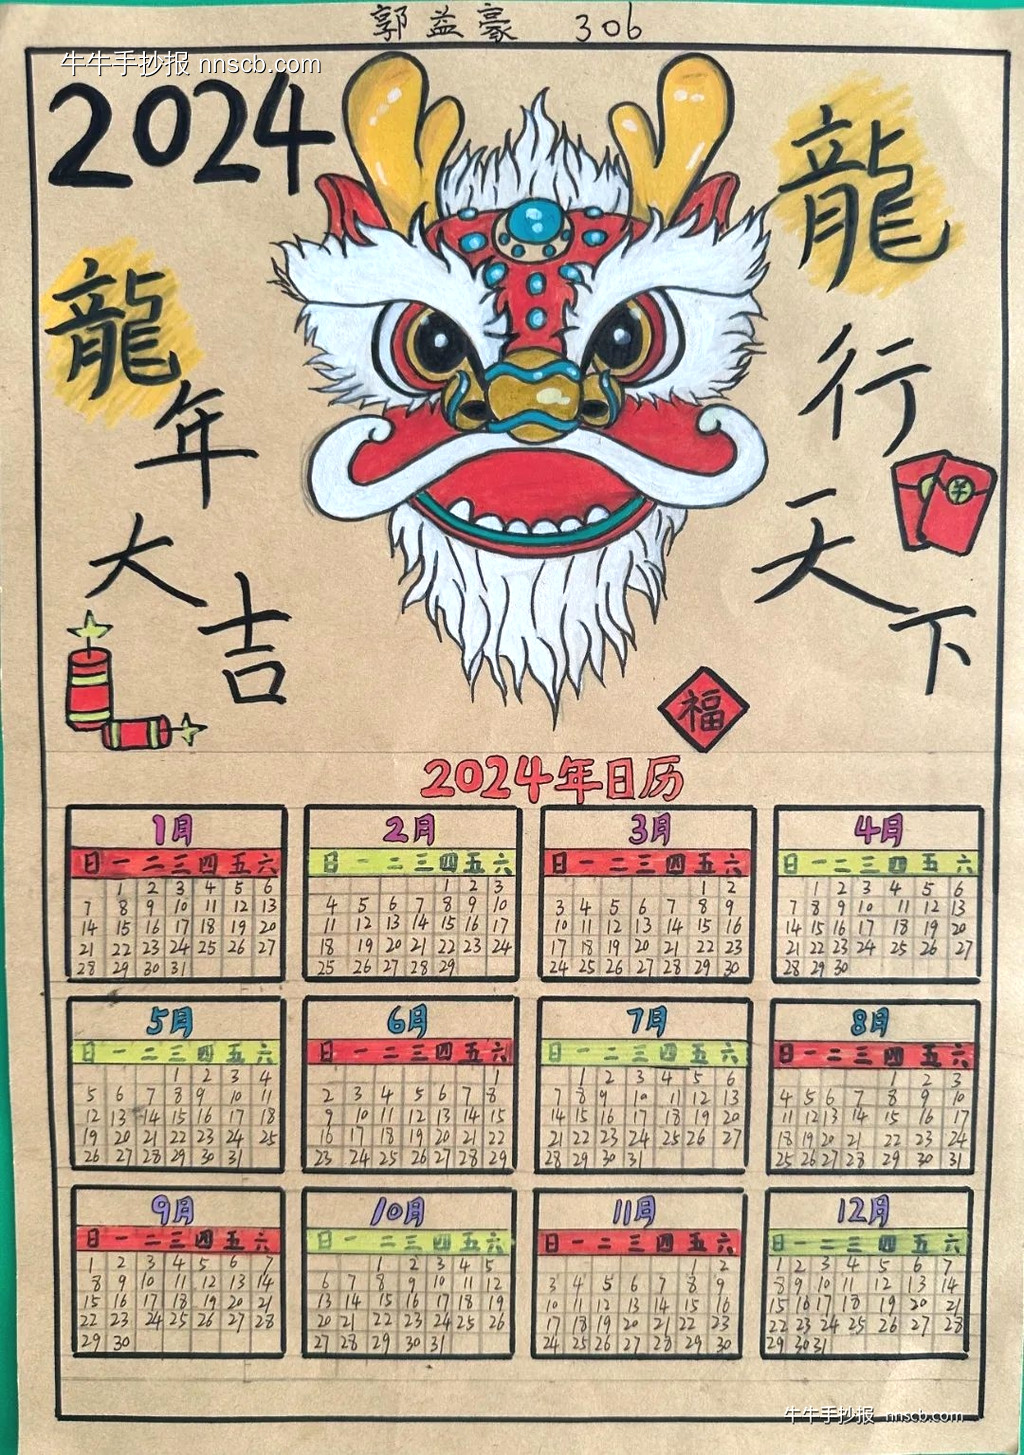 郭益豪 306
牛牛手抄报 nnscb.com
2024
龍年大吉
龍行天下
福
2024年日历
1月
日 一 二 三 四 五 六
1 2 3 4 5 6
7 8 9 10 11 12 13
14 15 16 17 18 19 20
21 22 23 24 25 26 27
28 29 30 31
2月
日 一 二 三 四 五 六
1 2 3
4 5 6 7 8 9 10
11 12 13 14 15 16 17
18 19 20 21 22 23 24
25 26 27 28 29
3月
日 一 二 三 四 五 六
1 2
3 4 5 6 7 8 9
10 11 12 13 14 15 16
17 18 19 20 21 22 23
24 25 26 27 28 29 30
4月
日 一 二 三 四 五 六
1 2 3 4 5 6
7 8 9 10 11 12 13
14 15 16 17 18 19 20
21 22 23 24 25 26 27
28 29 30
5月
日 一 二 三 四 五 六
1 2 3 4
5 6 7 8 9 10 11
12 13 14 15 16 17 18
19 20 21 22 23 24 25
26 27 28 29 30 31
6月
日 一 二 三 四 五 六
1
2 3 4 5 6 7 8
9 10 11 12 13 14 15
16 17 18 19 20 21 22
23 24 25 26 27 28 29
7月
日 一 二 三 四 五 六
1 2 3 4 5 6
7 8 9 10 11 12 13
14 15 16 17 18 19 20
21 22 23 24 25 26 27
28 29 30 31
8月
日 一 二 三 四 五 六
1 2 3
4 5 6 7 8 9 10
11 12 13 14 15 16 17
18 19 20 21 22 23 24
25 26 27 28 29 30 31
9月
日 一 二 三 四 五 六
1 2 3 4 5 6 7
8 9 10 11 12 13 14
15 16 17 18 19 20 21
22 23 24 25 26 27 28
29 30
10月
日 一 二 三 四 五 六
1 2 3 4 5
6 7 8 9 10 11 12
13 14 15 16 17 18 19
20 21 22 23 24 25 26
27 28 29 30 31
11月
日 一 二 三 四 五 六
1 2
3 4 5 6 7 8 9
10 11 12 13 14 15 16
17 18 19 20 21 22 23
24 25 26 27 28 29 30
12月
日 一 二 三 四 五 六
1 2 3 4 5 6 7
8 9 10 11 12 13 14
15 16 17 18 19 20 21
22 23 24 25 26 27 28
29 30 31
牛牛手抄报 nnscb.com